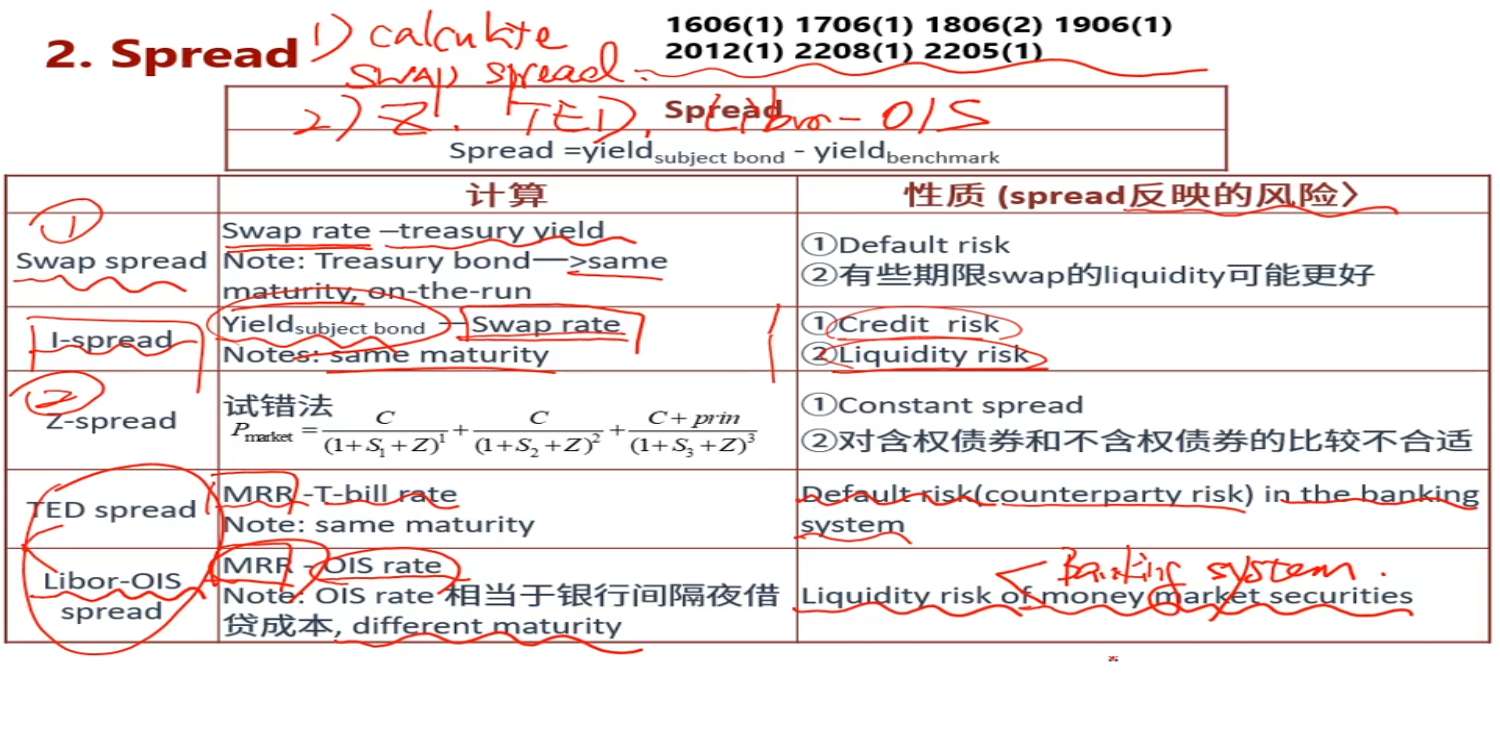 2. Spread
1) calculate
swap spread.
1606(1) 1706(1) 1806(2) 1906(1)
2012(1) 2208(1) 2205(1)
Spread
2) Z. TED, Libor-OIS
Spread =yield subject bond - yield benchmark
计算
性质 (spread反映的风险〉
①
Swap spread
Swap rate –treasury yield
Note: Treasury bond—>same
maturity, on-the-run
①Default risk
②有些期限swap的liquidity可能更好
I-spread
Yield subject bond — Swap rate
Notes: same maturity
①Credit risk
②Liquidity risk
②
Z-spread
试错法
P market = C/(1+S₁+Z)¹ + C/(1+S₂+Z)² + C+prin/(1+S₃+Z)³
①Constant spread
②对含权债券和不含权债券的比较不合适
TED spread
MRR -T-bill rate
Note: same maturity
Default risk(counterparty risk) in the banking
system
Libor-OIS
spread
MRR - OIS rate
Note: OIS rate 相当于银行间隔夜借
贷成本, different maturity
< Banking system.
Liquidity risk of money market securities